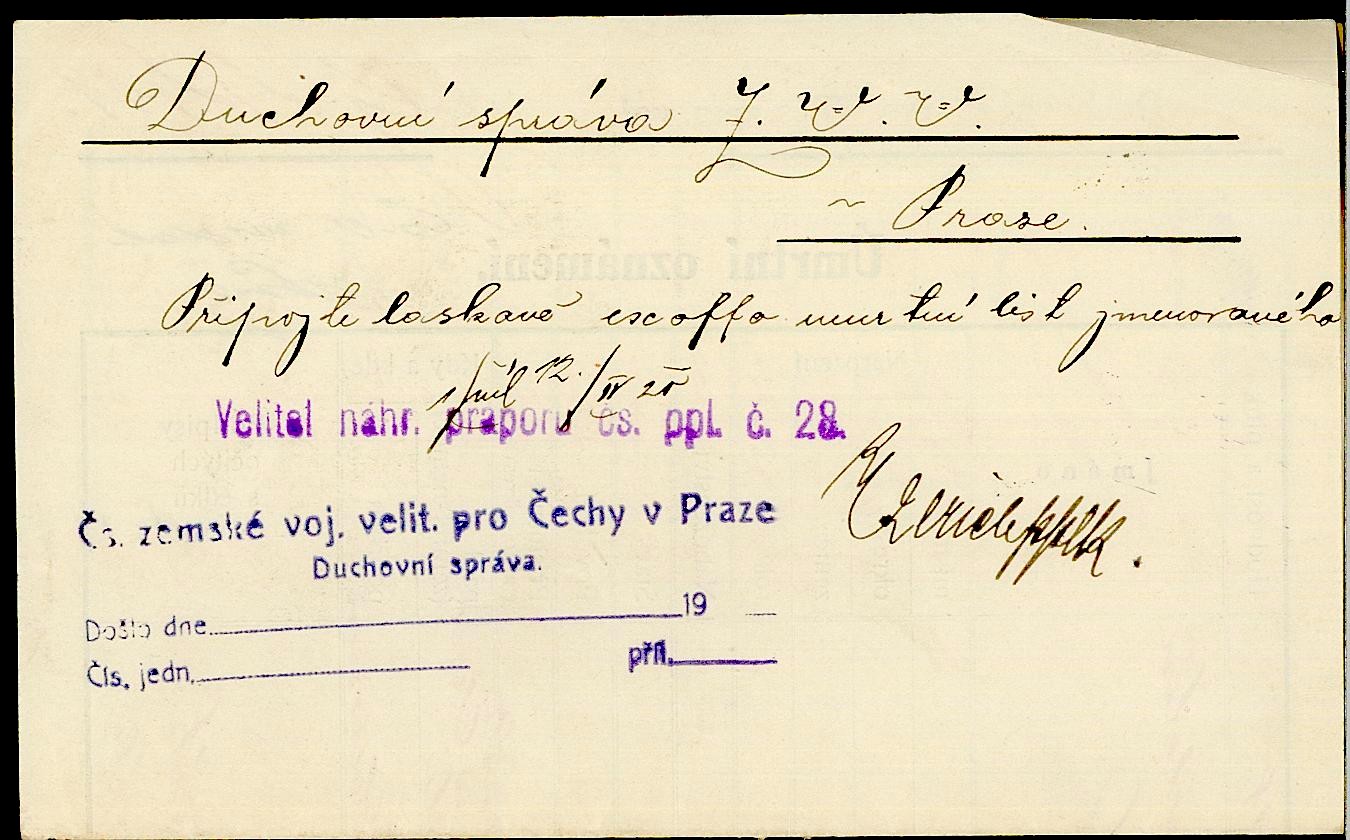 Duchovní správa Z. V. V.
v Praze.
Připojte laskavě ex offo umrtní list jmenovaného
12. / IV 20
Velitel náhr. praporu čs. ppl. č. 28.
Čs. zemské voj. velit. pro Čechy v Praze
Duchovní správa.
Došlo dne 19
Čís. jedn. příl.
Úmrtní oznámení.